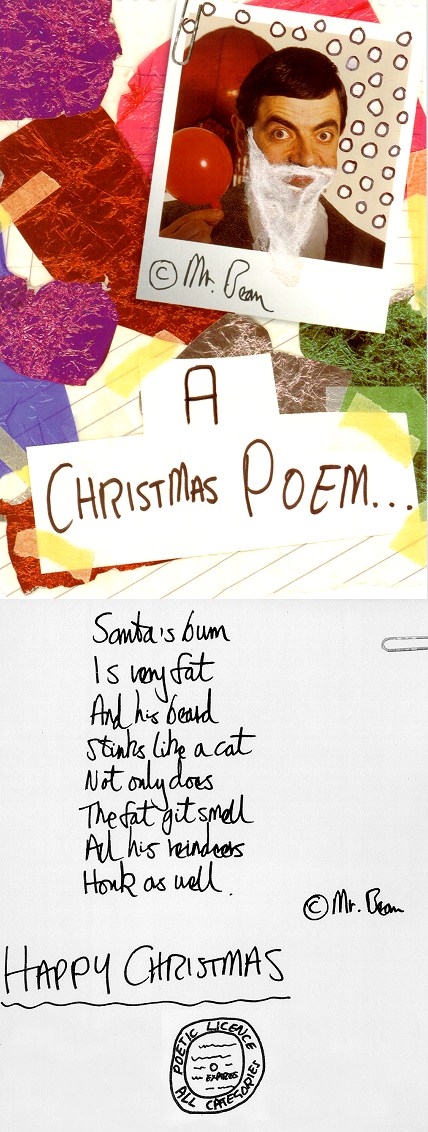 © Mr. Bean
A
CHRISTMAS POEM...
Santa's bum
Is very fat
And his beard
Stinks like a cat
Not only does
The fat git smell
All his reindeers
Honk as well.
© Mr. Bean
HAPPY CHRISTMAS
POETIC LICENCE
EXPIRES
ALL CATEGORIES